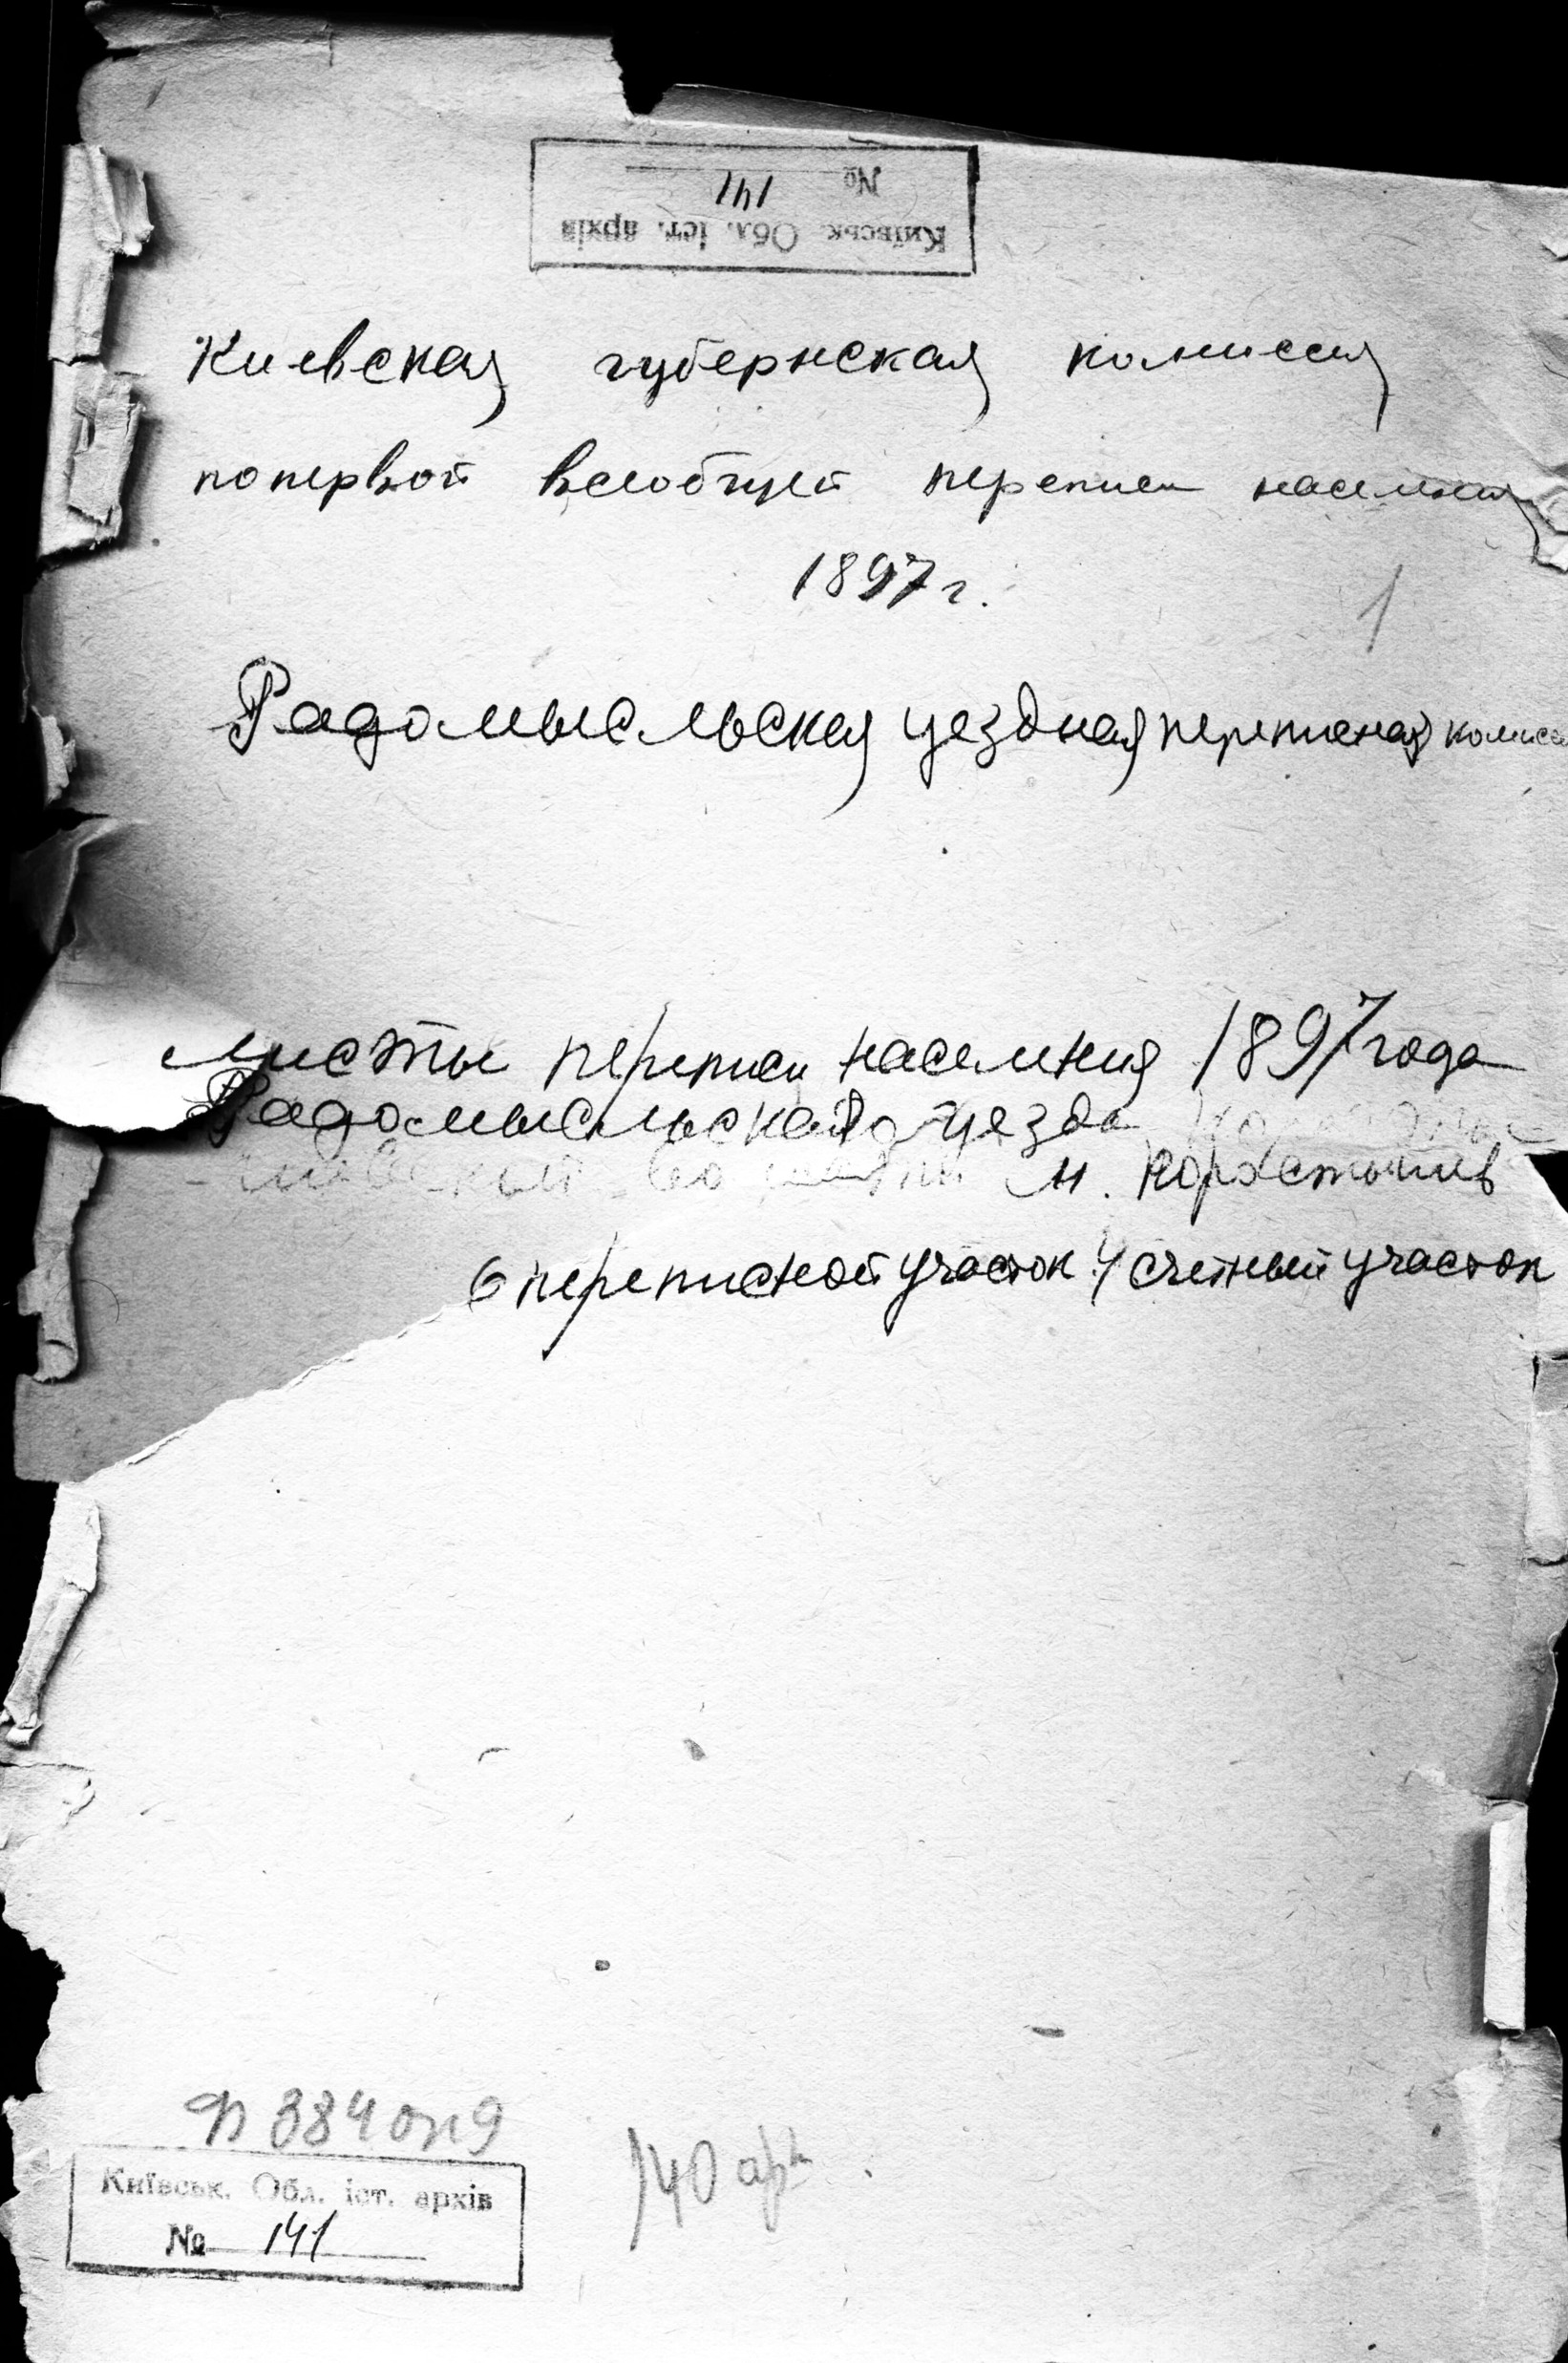 № 141
Київськ. Обл. іст. архів
Киевская губернская комиссия
по первой всеобщей переписи населения
1897 г.
1
Радомысльская уездная переписная комисс
Листы переписи населения 1897 года
Радомысльского уезда
м. Коростышев
6 переписной участок 4 счетный участок
Ф 384 оп 9
Київськ. Обл. іст. архів
№ 141
140 арк